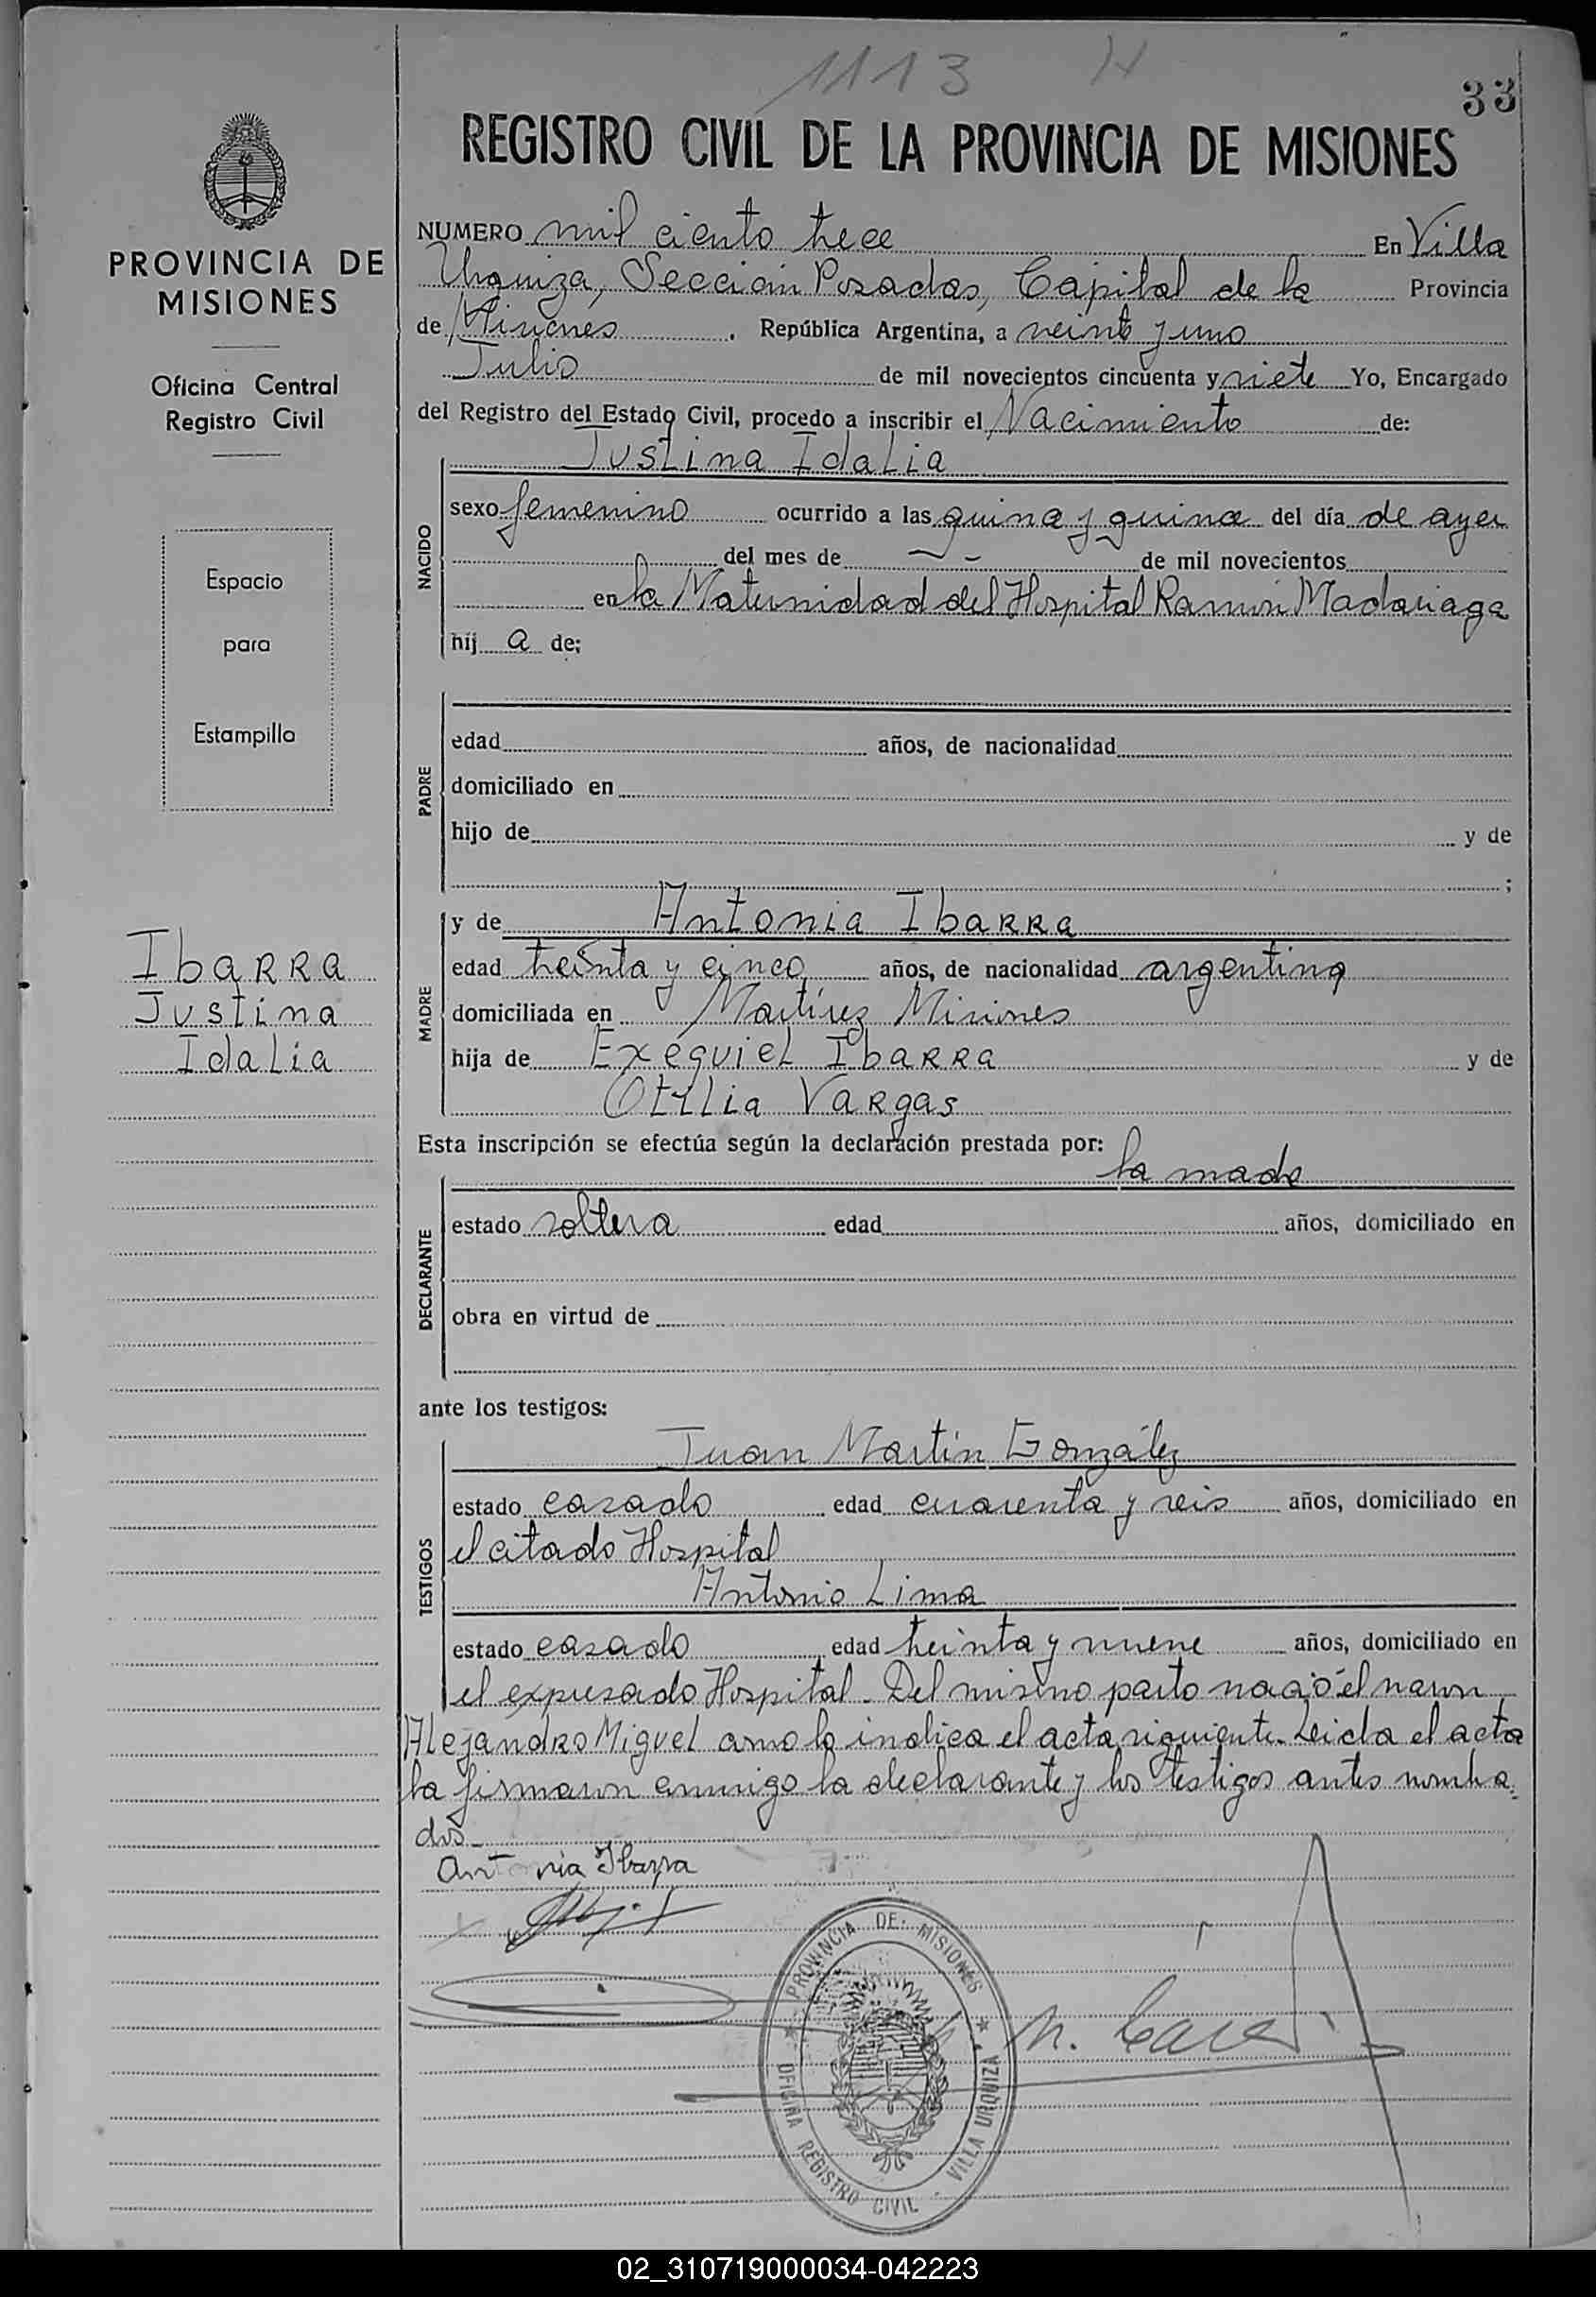 1113 H
33
REGISTRO CIVIL DE LA PROVINCIA DE MISIONES
PROVINCIA DE
MISIONES
Oficina Central
Registro Civil
Espacio
para
Estampilla
Ibarra
Justina
Idalia
NUMERO mil ciento trece En Villa
Urquiza, Sección Posadas, Capital de la Provincia
de Misiones, República Argentina, a veinte y uno
Julio de mil novecientos cincuenta y siete Yo, Encargado
del Registro del Estado Civil, procedo a inscribir el Nacimiento de:
Justina Idalia
NACIDO
sexo femenino ocurrido a las quince y quince del día de ayer
del mes de de mil novecientos
en la Maternidad del Hospital Ramón Madariaga
hij a de;
PADRE
edad años, de nacionalidad
domiciliado en
hijo de y de
;
MADRE
y de Antonia Ibarra
edad treinta y cinco años, de nacionalidad argentina
domiciliada en Martírez Misiones
hija de Exequiel Ibarra y de
Otilia Vargas
Esta inscripción se efectúa según la declaración prestada por:
la madre
DECLARANTE
estado soltera edad años, domiciliado en
obra en virtud de
ante los testigos:
Juan Martín González
TESTIGOS
estado casado edad cuarenta y seis años, domiciliado en
el citado Hospital
Antonio Lima
estado casado edad treinta y nueve años, domiciliado en
el expresado Hospital. Del mismo parto nació el varon
Alejandro Miguel como lo indica el acta siguiente. Leida el acta
la firmaron conmigo la declarante y los testigos antes nombra
dos.
Antonia Ibarra
PROVINCIA DE MISIONES
OFICINA REGISTRO CIVIL - VILLA URQUIZA
02_310719000034-042223